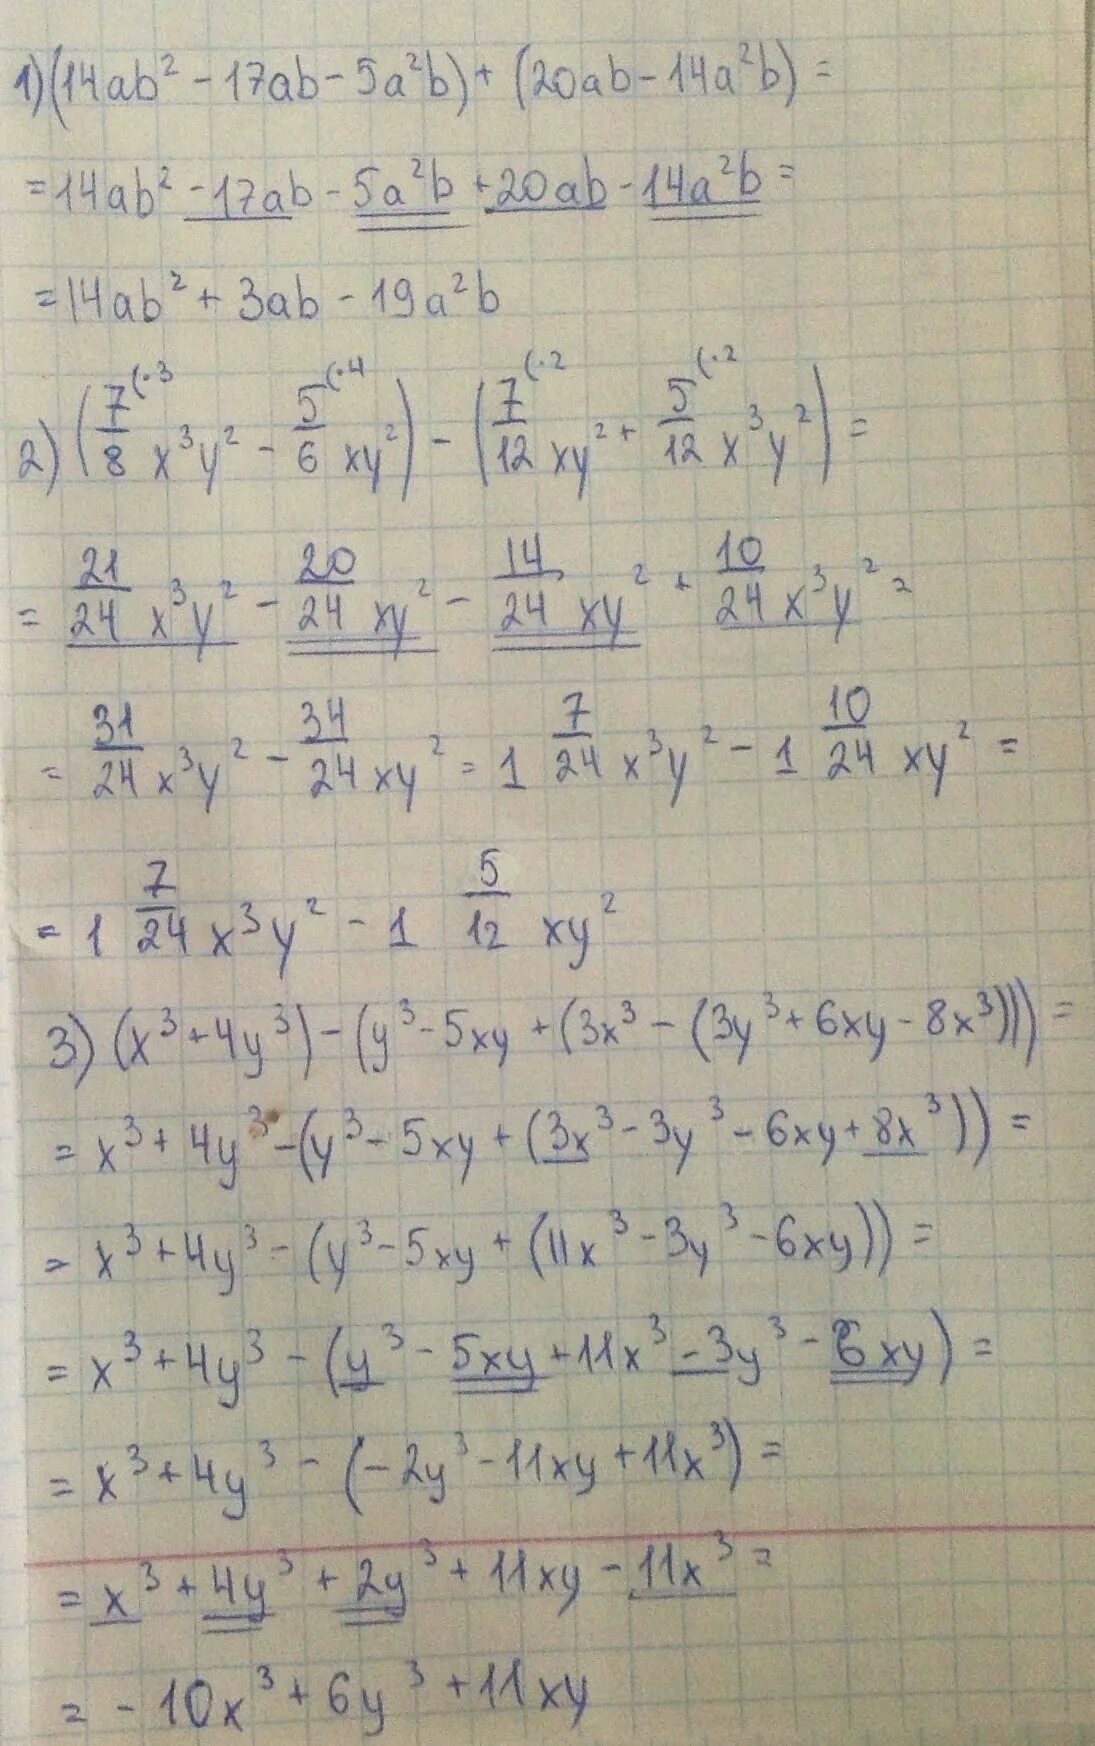 1) (14ab² - 17ab - 5a²b) + (20ab - 14a²b) =
= 14ab² - 17ab - 5a²b + 20ab - 14a²b =
= 14ab² + 3ab - 19a²b
2) (7/8 (·3 x³y² - 5/6 (·4 xy²) - (7/12 (·2 xy² + 5/12 (·2 x³y²) =
= 21/24 x³y² - 20/24 xy² - 14/24 xy² + 10/24 x³y² =
= 31/24 x³y² - 34/24 xy² = 1 7/24 x³y² - 1 10/24 xy² =
= 1 7/24 x³y² - 1 5/12 xy²
3) (x³ + 4y³) - (y³ - 5xy + (3x³ - (3y³ + 6xy - 8x³))) =
= x³ + 4y³ - (y³ - 5xy + (3x³ - 3y³ - 6xy + 8x³)) =
= x³ + 4y³ - (y³ - 5xy + (11x³ - 3y³ - 6xy)) =
= x³ + 4y³ - (y³ - 5xy + 11x³ - 3y³ - 6xy) =
= x³ + 4y³ - (-2y³ - 11xy + 11x³) =
= x³ + 4y³ + 2y³ + 11xy - 11x³ =
= -10x³ + 6y³ + 11xy